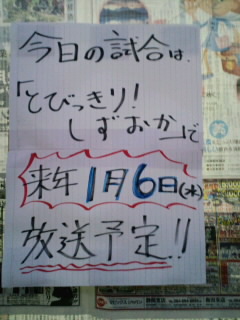 今日の試合は、
「とびっきり！
しずおか」で
来年1月6日(水)
放送予定!!